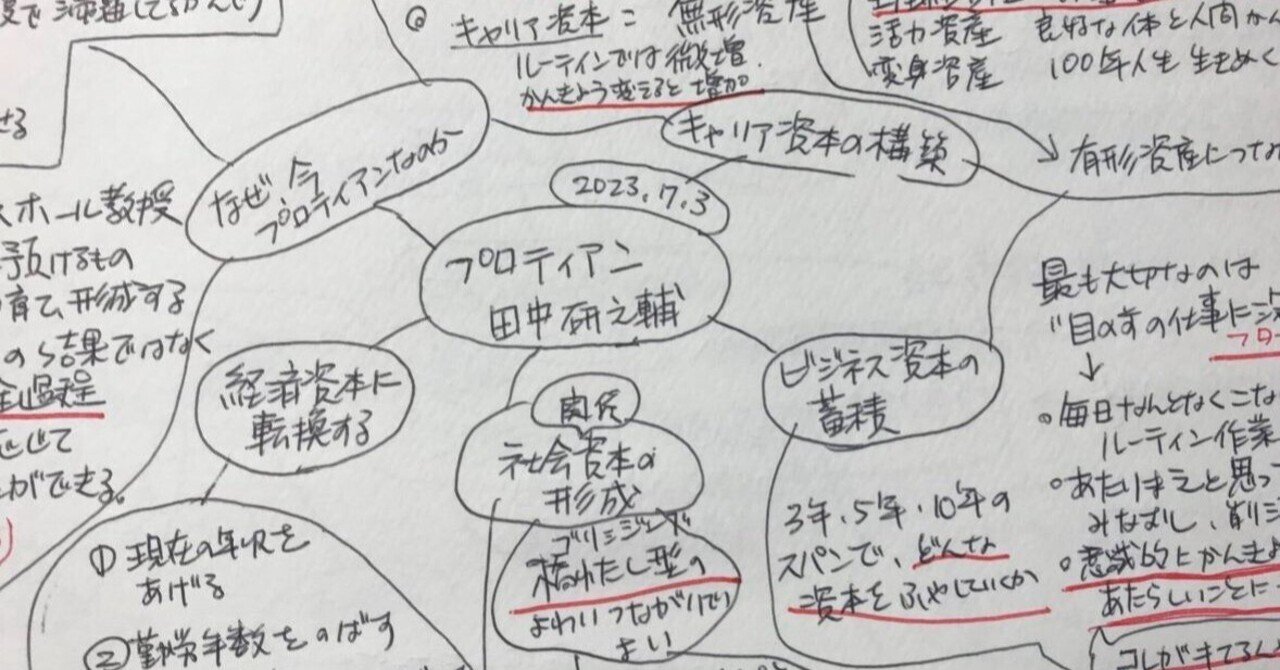 キャリア資本 = 無形資産
ルーティンでは微増.
かんきょう変えると増加
活力資産 良好な体と人間かん
変身資産 100年人生 生きぬく
キャリア資本の構築
有形資産につな
なぜ、今
プロティアンなのか
2023.7.3
プロティアン
田中研之輔
スホール教授
預けるもの
育て、形成する
の結果ではなく
全過程
じて
ができる。
経済資本に
転換する
① 現在の年収を
あげる
② 勤労年数をのばす
関係
社会資本の
形成
ブリッジング
橋わたし型の
よわいつながりでい
よい
ビジネス資本の
蓄積
3年、5年・10年の
スパンで、どんな
資本をふやしていくか
最も大切なのは
"目の前の仕事に
フロー
↓
○毎日なんとなくこな
ルーティン作業
○あたりまえと思って
みなおし、削り
○意識的にかんきょ
あたらしいことに
コレができてる